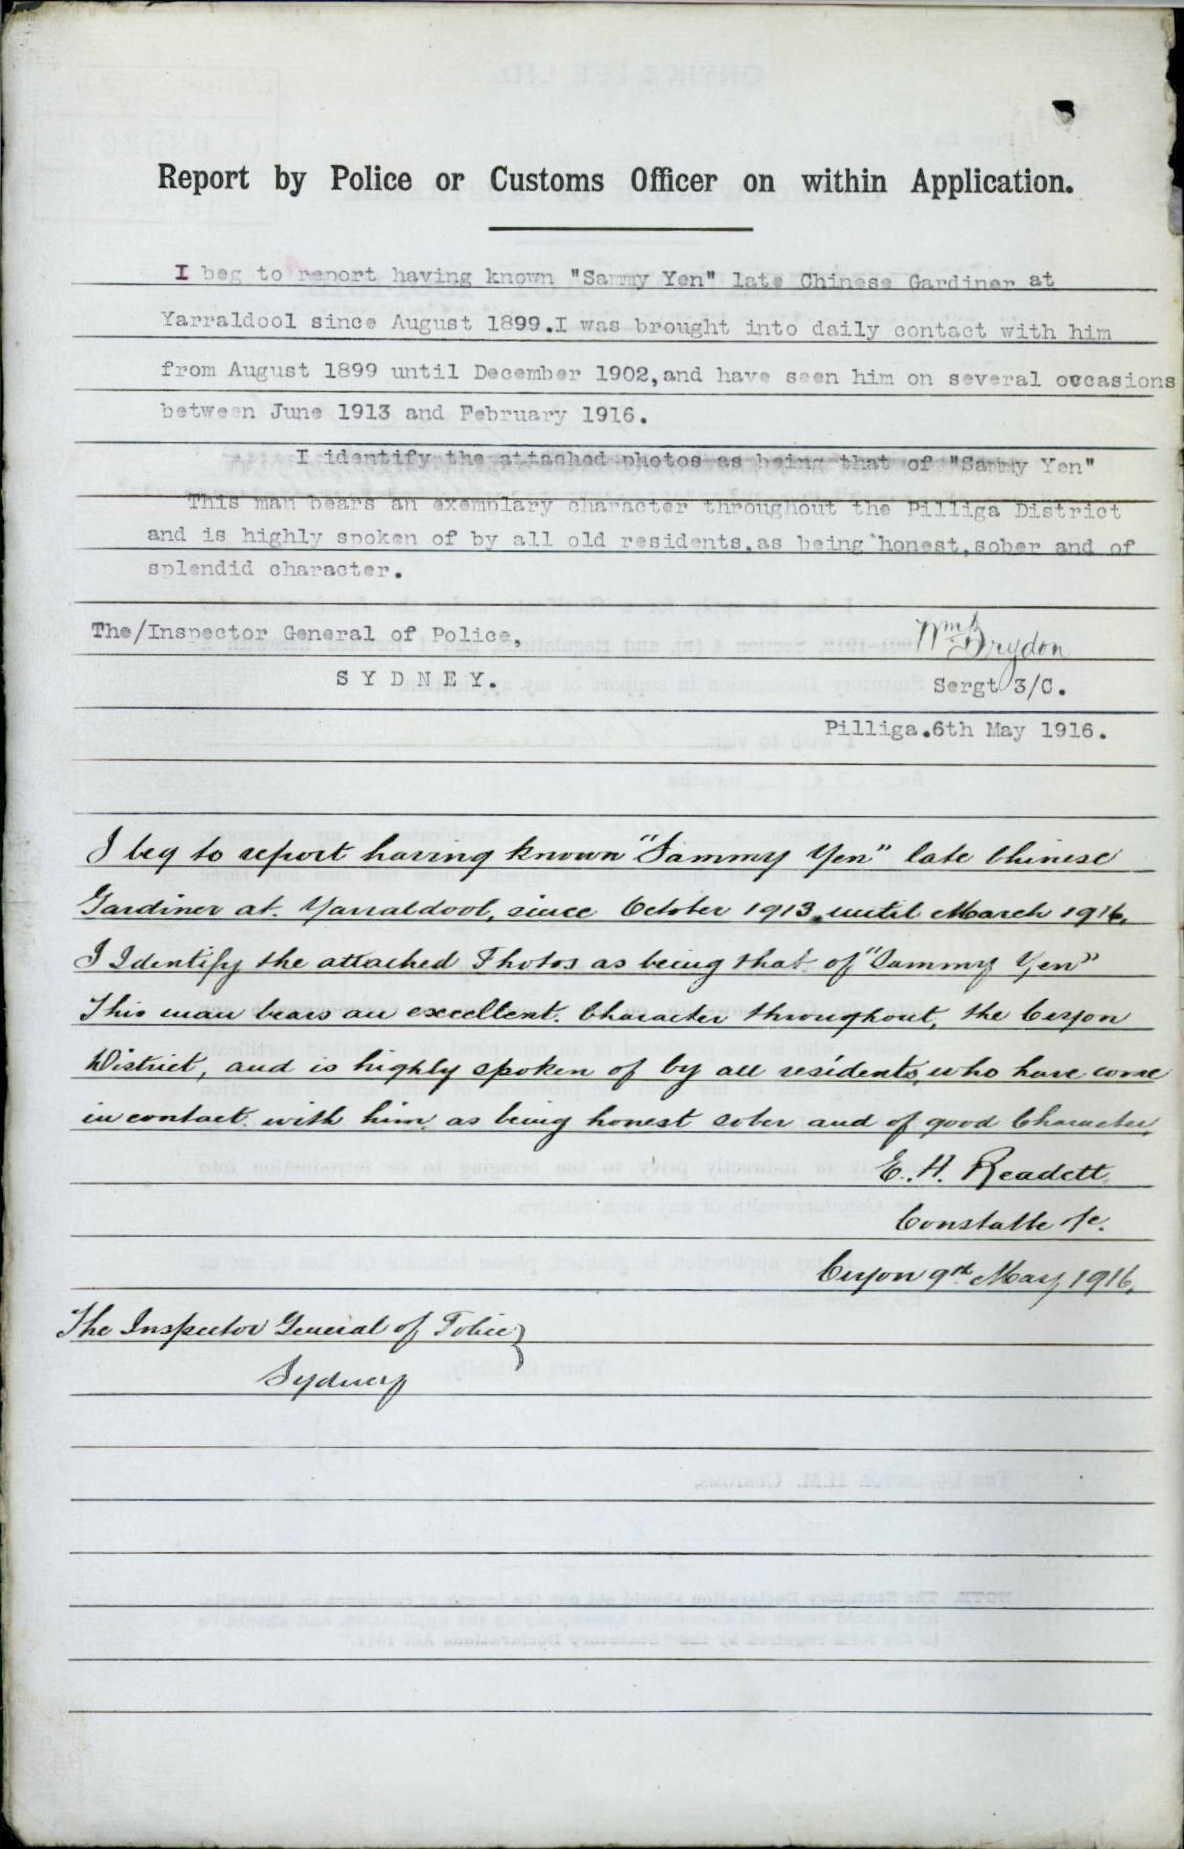 Report by Police or Customs Officer on within Application.
I beg to report having known "Sammy Yen" late Chinese Gardiner at
Yarraldool since August 1899.I was brought into daily contact with him
from August 1899 until December 1902,and have seen him on several occasions
between June 1913 and February 1916.
I identify the attached photos as being that of "Sammy Yen"
This man bears an exemplary character throughout the Pilliga District
and is highly spoken of by all old residents,as being honest,sober and of
splendid character.
The/Inspector General of Police,
SYDNEY.
Wm Drydon
Sergt 3/C.
Pilliga.6th May 1916.
I beg to report having known "Sammy Yen" late Chinese
Gardiner at Yarraldool, since October 1913 until March 1916.
I Identify the attached Photos as being that of "Sammy Yen"
This man bears an excellent Character throughout, the Cryon
District, and is highly spoken of by all residents, who have come
in contact with him as being honest sober and of good Character.
E. H. Readett
Constable 1/c.
Cryon 9th May 1916.
The Inspector General of Police
Sydney